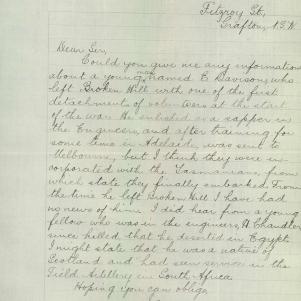 Fitzroy St,
Grafton, N.S.W.
Dear Sir,
Could you give me any information
about a young man named E Davison, who
left Broken Hill with one of the first
detachments of volunteers at the start
of the war. He enlisted as a sapper in
the Engineers, and after training for
some time in Adelaide, was sent to
Melbourne, but I think they were in-
corporated with the Tasmanians, from
which state they finally embarked. From
the time he left Broken Hill I have had
no news of him. I did hear from a young
fellow who was in the engineers, A Chandler
since killed, that he deserted in Egypt
I might state that he was a native of
Scotland and had seen service in the
Field Artillery in South Africa
Hoping you can oblige